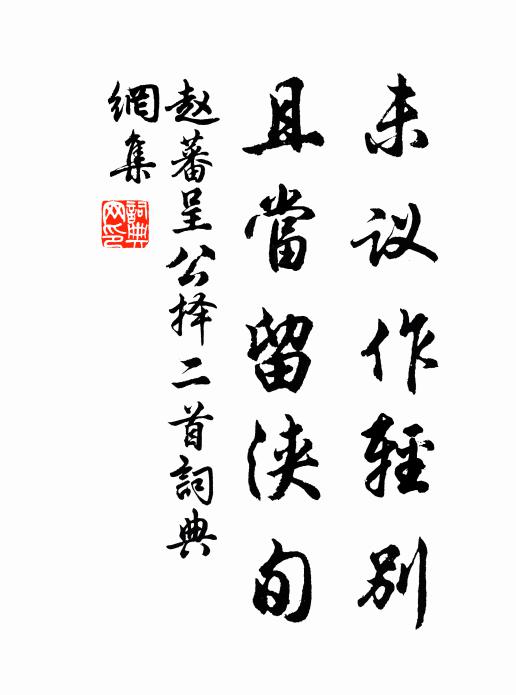 未议作輕别
且當留浹旬
赵蕃呈公择二首詞典
網集
詞典網印